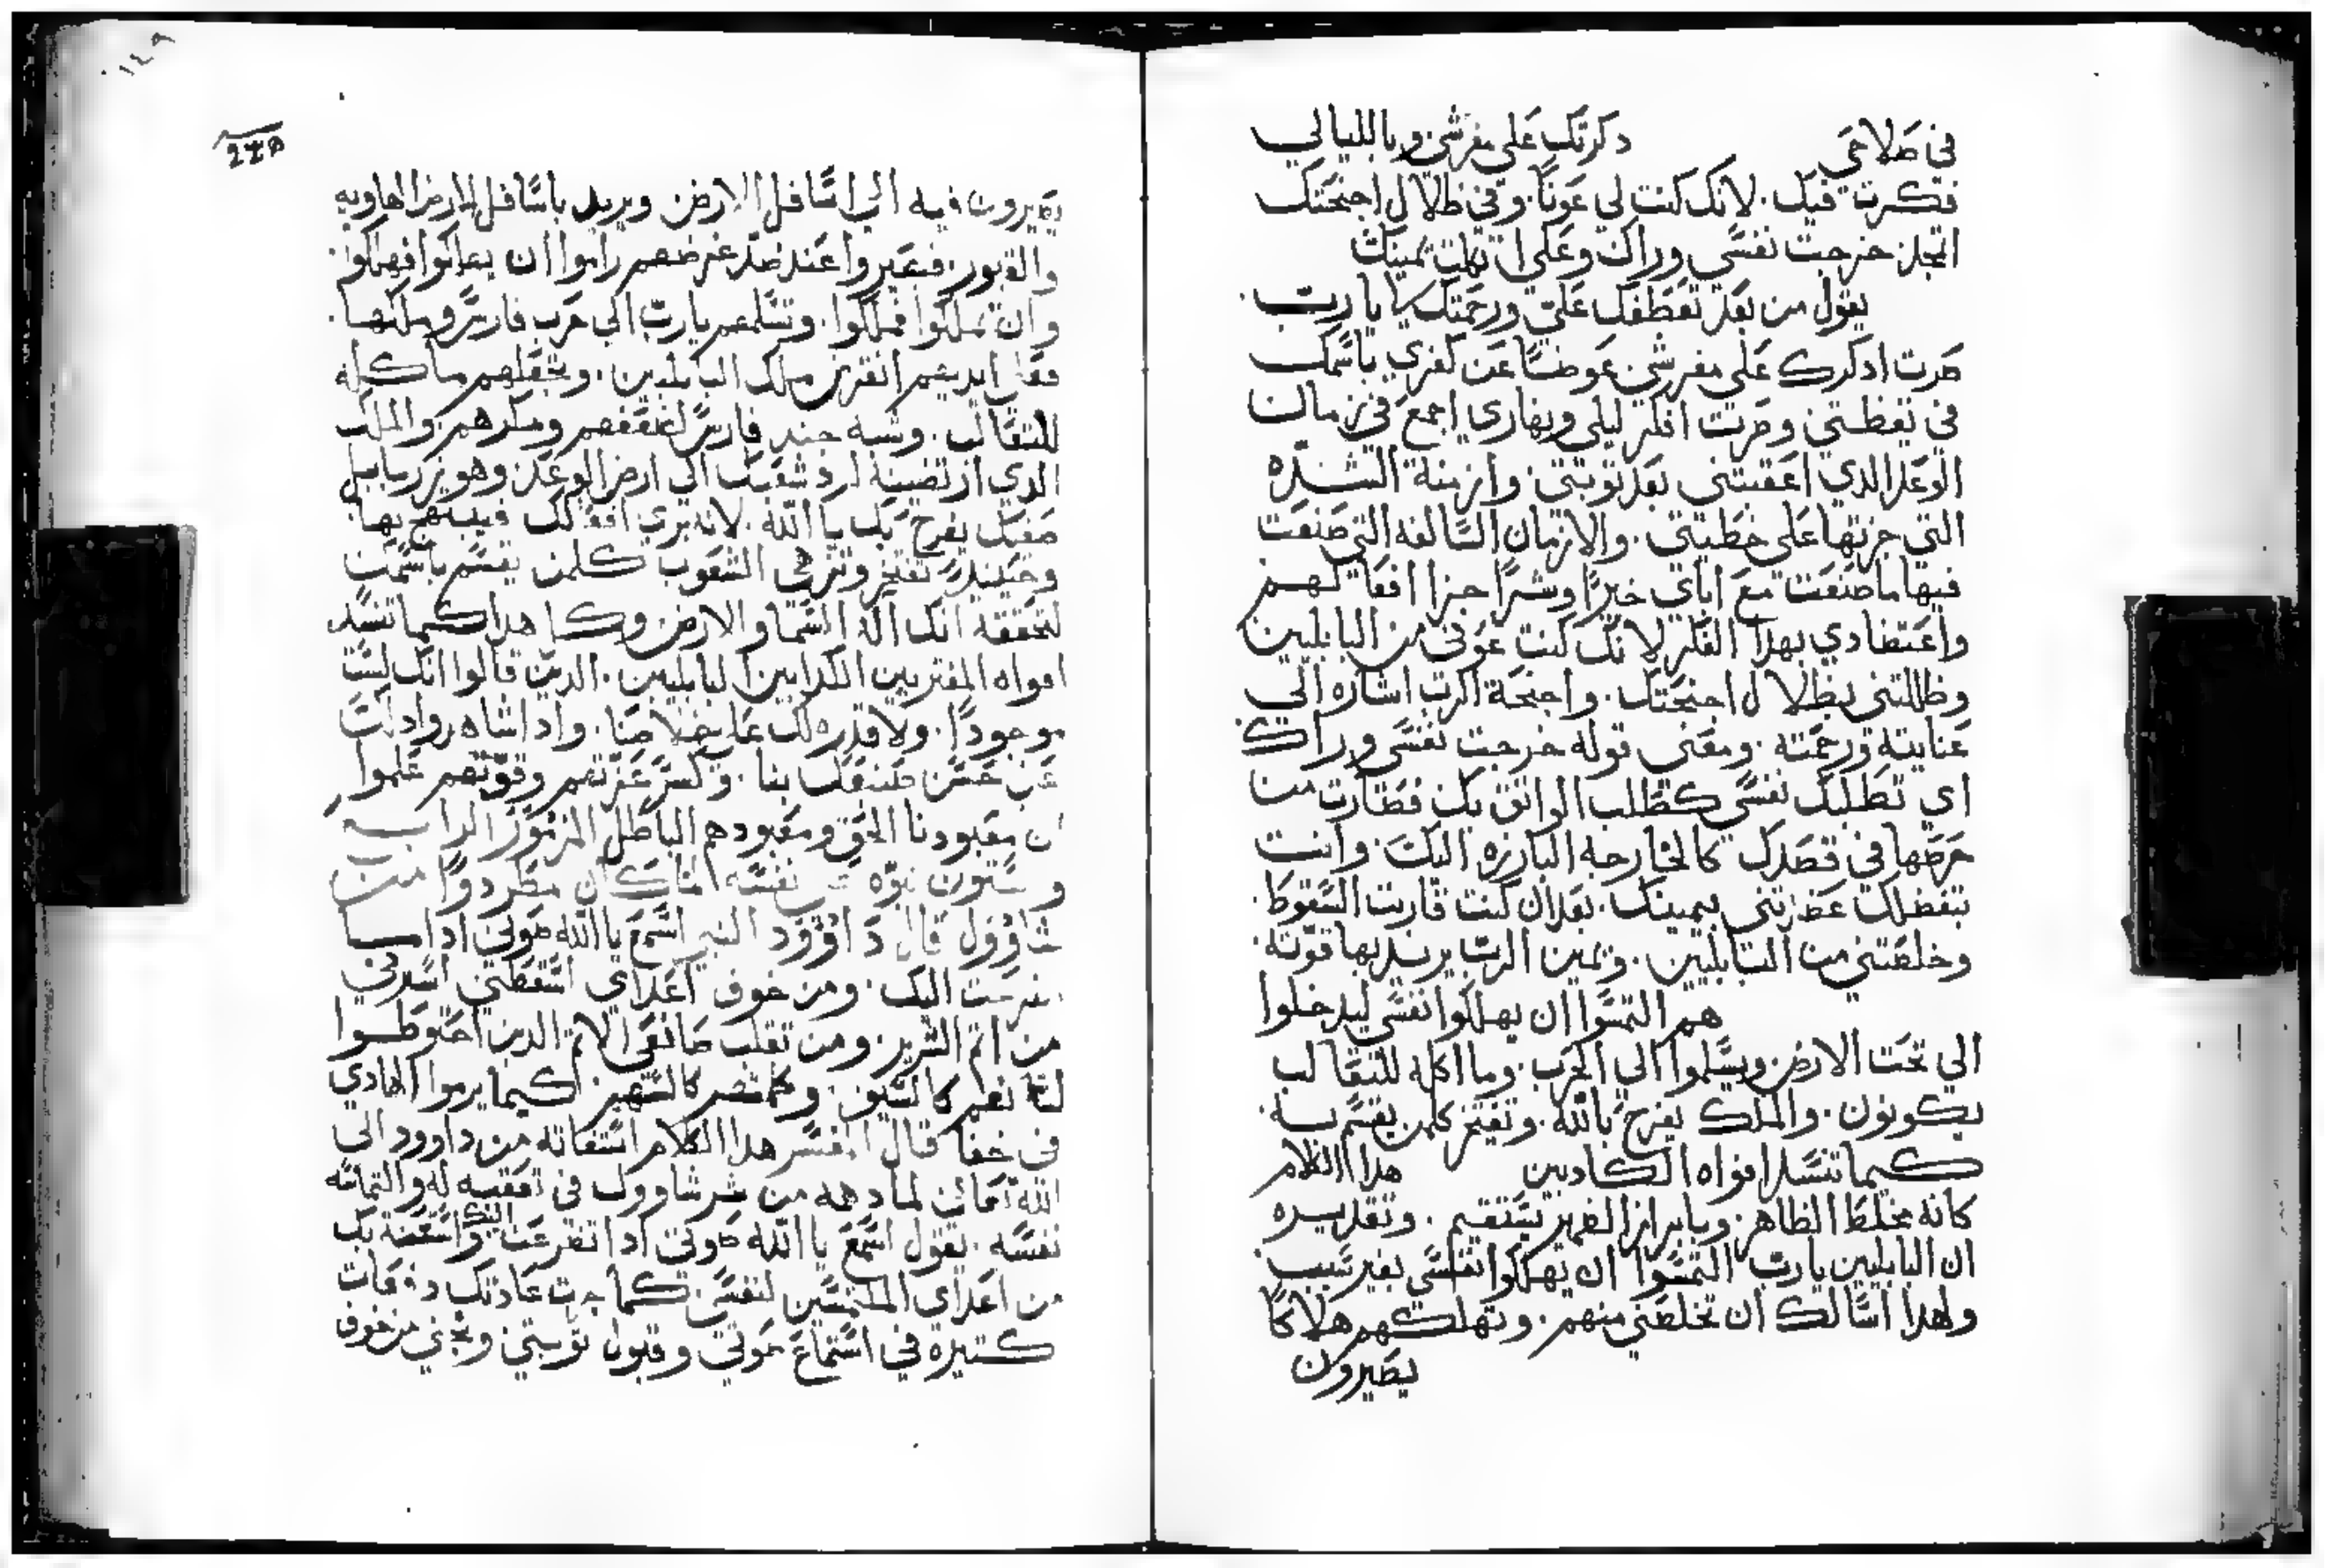 في صلاتي ذكرتك على مفرشي وبالليالي
فكرت فيك. لانك كنت لي عونًا. وفي ظلال اجنحتك
اتجلز خرجت نفسي وراك وعلي اتكلت يمينك
يقول من بعد تعطفك علي ورحمتك يا رب.
صرت ادكرك على مفرشي عوضًا عن كفري باسمك
في يقظتي وصرت افكر ليلي ونهاري اجمع في زمان
الوعد الذي اعقبتني بعد توبتي وازمنة الشده
التي جزتها على خطيتي. والازمان السالفه التي صنعت
فيها ما صنعت مع اباي خيرًا وشرًا جزا افعالهم
واعتضادي بهدا الفكر لانك كنت عوني من البابليين
وظللتني بظلال اجنحتك. واجنحة الرب اشاره الى
عنايته ورحمته. ومعنى قوله خرجت نفسي وراك
اي تطلبك نفسي كطلب الواثق بك فصارت من
حرصها في قصدك كالخارجه البارزه اليك. وانت
بتفضلك عضدتني بيمينك. بعد ان كنت قاربت السقوط.
وخلصتني من البابليين. ويمين الرب يريد بها قوته.
هم التمسوا ان يهلكوا نفسي ليدخلوا
الي تحت الارض ويسلموا الي الحرب. وما اكله للتعالب
يكونون. والملك يفرح بالله. وتفتخر كلمن يقسم به
كيما تنسد افواه الكادبين هدا الكلام
كانه مخلط الظاهر. وبابراز الضمير يستقيم. وتقديره
ان البابليين يا رب التمسوا ان يهلكوا نفسي بغير سبب
ولهدا اسالك ان تخلصني منهم. وتهلكهم هلاكًا
يصيرون
١٤٩
يصيرون فيه الي اسافل الارض ويريد باسافل الارض الهاويه
والقبور. فيصيروا عند ضد غرضهم راموا ان يهلكوا فهلكوا.
وان يملكوا فملكوا. وتسلمهم يارب الي حرب فارس وملكها.
ايديهم انقرض ملك البابليين. وتجعلهم ماكله
للتعالب. وشبه جند فارس لضعفهم ومكرهم. والملك
الدي ارتضيته لرد شعبك الي ارض الوعد وهو زربابيل
يفرح بك يا الله. لانه يري افعالك فيبتهج بها.
وحينيد تفتخر وتزهى الشعوب كلمن يقسم باسمك
لتحققه انك اله السما والارض وكل هدا كيما تنسد
افواه المفتريين الكدابين البابليين. الدين قالوا انك لست
موجودًا. ولا قدره لك على خلاصنا. وادا شاهدوا دلت
عن حسن صنيعك بنا. وكسر عزتهم وقوتهم علموا
ان معبودنا الحق ومعبودهم الباطل المزمور الرابع
وستون نفسه لما كان مطرودًا من
شاوول قال داوود النبي اسمع يا الله صوتي ادا
تضرعت اليك. ومن خوف اعداي استرني
من اتم الشرير. ومن تقلب صانعى الاتم الدين
كالسيف. كالسهم. كيما يرموا الهادي
في خفا قال المفسر هدا الكلام استغاثه من داوود الى
الله تعالى لما دهمه من شر شاوول في تعقبه له والتماسه
نفسه. يقول اسمع يا الله صوتي ادا تضرعت اليك واستغثت بك
من اعداي الملتمسين لنفسي. كما جرت عادتك دفعات
كتيره في استماع صوتي وقبول توبتي ونجني من خوف